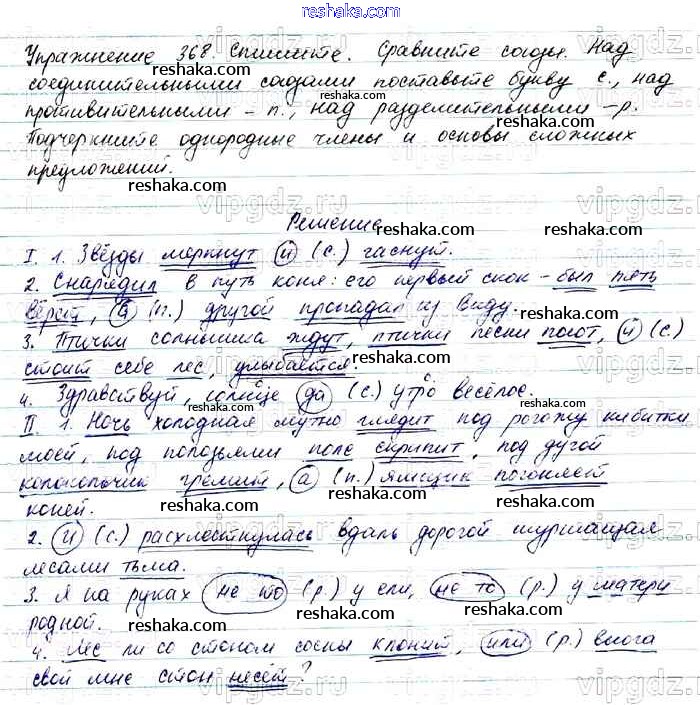 reshaka.com
Упражнение 368. Спишите. Сравните союзы. Над
соединительными союзами поставьте букву с., над
противительными - п., над разделительными - р.
Подчеркните однородные члены и основы сложных
предложений.
Решение
I. 1. Звёзды меркнут и (с.) гаснут.
2. Снарядил в путь коня: его первый скок - был пять
вёрст, а (п.) другой пропадал из виду.
3. Птички солнышка ждут, птички песни поют, и (с.)
стоит себе лес, улыбается.
4. Здравствуй, солнце да (с.) утро весёлое.
II. 1. Ночь холодная мутно глядит под рогожу кибитки
моей, под полозьями поле скрипит, под дугой
колокольчик гремит, а (п.) ямщик погоняет
коней.
2. И (с.) расхлестнулась вдаль дорогой шуршащая
лесами тьма.
3. Я на руках не то (р.) у ели, не то (р.) у матери
родной.
4. Лес ли со стоном сосны клонит, или (р.) вьюга
свой мне стон несёт?